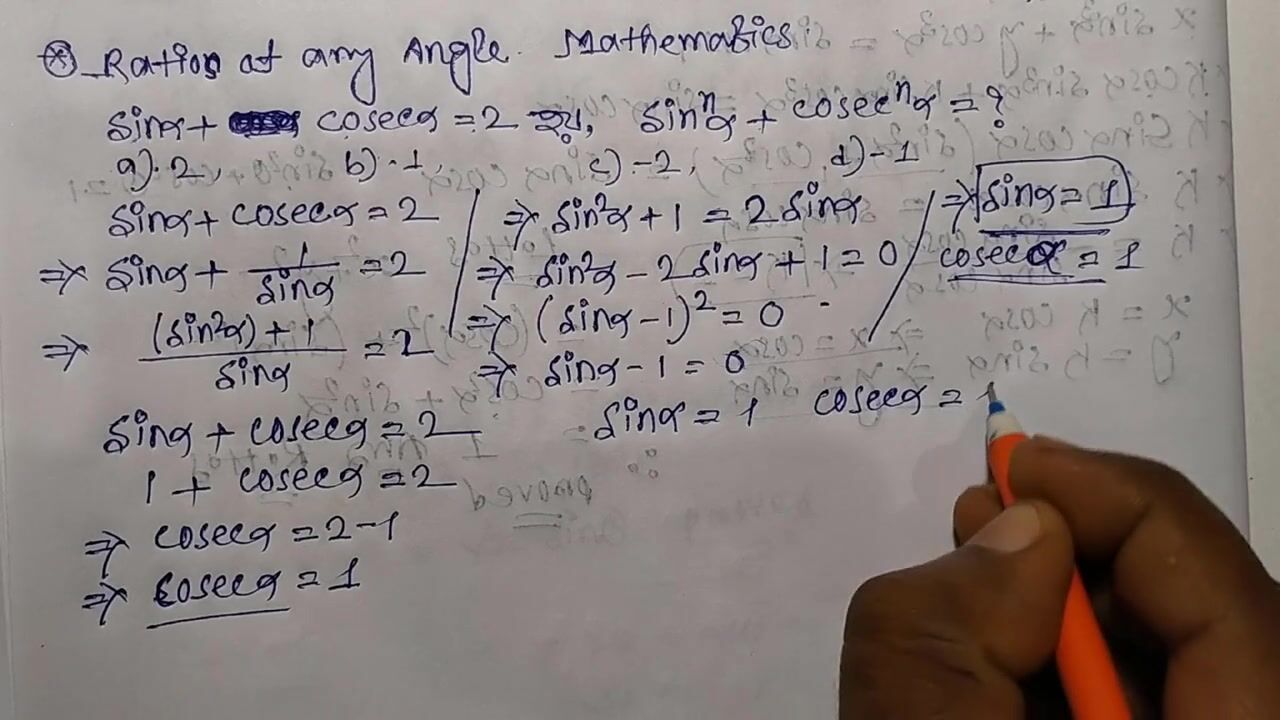 ⊛ Ratios at any Angle. Mathematics
sinα + cosecα = 2 হয়, sinⁿα + cosecⁿα = ?
a). 2, b) - 1, c) - 2, d) - 1
sinα + cosecα = 2
⇒ sinα + 1/sinα = 2
⇒ (sin²α) + 1 / sinα = 2
sinα + cosecα = 2
1 + cosecα = 2
⇒ cosecα = 2 - 1
⇒ cosecα = 1
⇒ sin²α + 1 = 2 sinα
⇒ sin²α - 2 sinα + 1 = 0
⇒ (sinα - 1)² = 0
⇒ sinα - 1 = 0
sinα = 1 cosecα = 1
⇒ sinα = 1
cosecα = 1